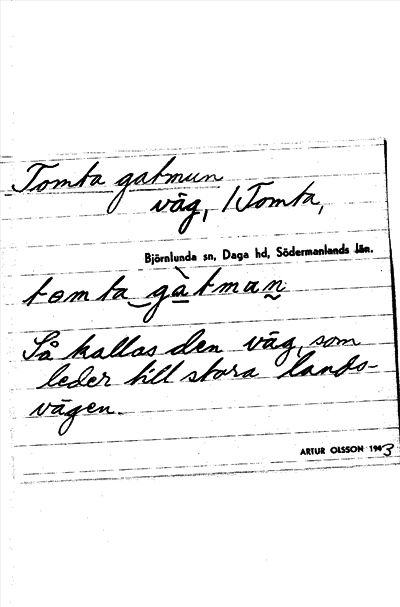 Tomta gatmun
väg, /Tomta,
Björnlunda sn, Daga hd, Södermanlands län.
tomta gàtman
Så kallas den väg, som
leder till stora lands-
vägen.
ARTUR OLSSON 1943